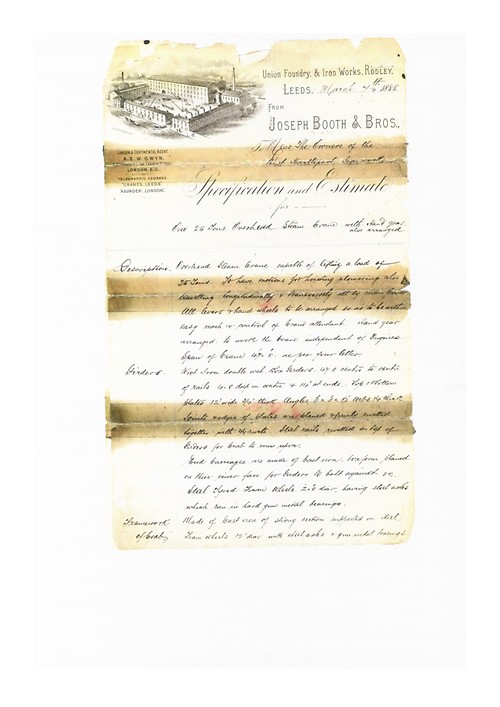 Union Foundry, & Iron Works, Rodley,
Leeds, March 4th 1885
From
Joseph Booth & Bros.,
London & Continental Agent,
A. E. W. Gwyn,
London, E.C.
Telegraphic Address
"Cranes, Leeds"
London."
To Mess The Owners of the
West Hartlepool Ironworks
Specification and Estimate
for
One 25 Tons Overhead Steam Crane with Hand gear
also arranged
Description. Overhead Steam Crane capable of lifting a load of
25 Tons. To have motions for hoisting & lowering also
travelling longitudinally & transversely all by steam
All levers & hand wheels to be arranged so as to be within
easy reach & control of Crane attendant. Hand gear
arranged to work the Crane independent of Engines
Span of Crane as per your letter.
Girders. Wrot Iron double web Box Girders. 47.0 centre to centre
of rails 4.0 deep in centre & at ends. Top & Bottom
plates 12" wide thick Angles 3 x 3 x Webs thick
Joints & edges of plates are planed & firmly rivetted
together with rivets. Steel rails rivetted on top of
Girders for Crab to run upon.
End Carriages are made of Cast iron, box form, planed
on their inner face for Girders to bolt against &c
Steel Tyred Tram Wheels 2.0 diar, having steel axles
which run in hard gun metal bearings.
Framework Made of Cast iron of strong section supported on steel
of Crab, Tram wheels diar with steel axles & gun metal bearings